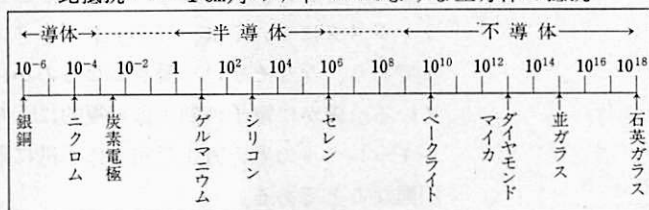 ←導体→ ←半導体→ ←不導体→
10⁻⁶ 10⁻⁴ 10⁻² 1 10² 10⁴ 10⁶ 10⁸ 10¹⁰ 10¹² 10¹⁴ 10¹⁶ 10¹⁸
銀銅
ニクロム
炭素電極
ゲルマニウム
シリコン
セレン
ベークライト
マイカ
ダイヤモンド
並ガラス
石英ガラス